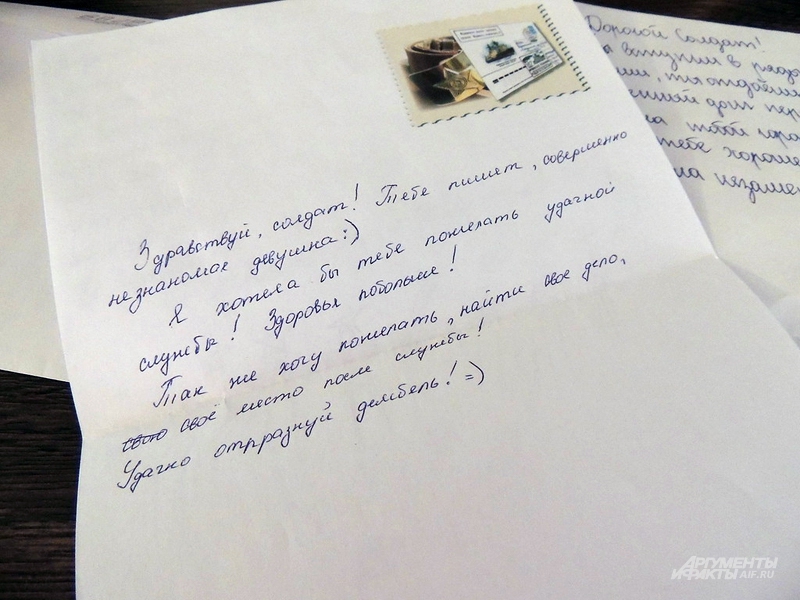 Здравствуй, солдат! Тебе пишет, совершенно
незнакомая девушка:)
Я хотела бы тебе пожелать удачной
службы! Здоровья побольше!
Так же хочу пожелать, найти своё дело,
свою своё место после службы!
Удачно отпразднуй дембель! =)
Дорогой Солдат!
вступил в ряды
отдаёшь
долг
твой
тебе хороше
на
АРГУМЕНТЫ
И ФАКТЫ AIF.RU